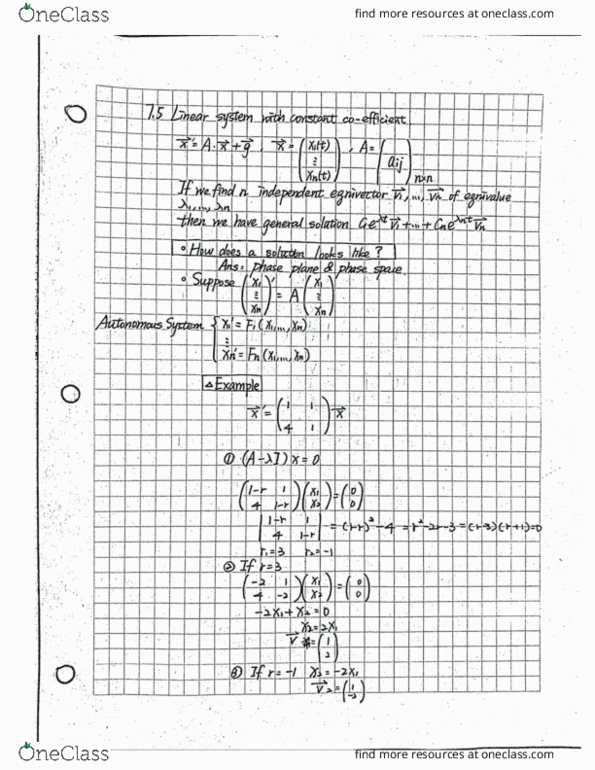 OneClass
find more resources at oneclass.com
7.5 Linear system with constant co-efficient
x⃗' = A·x⃗ + g⃗ , x⃗ = (x₁(t) ⋮ xₙ(t)) , A = (aij)n×n
If we find n independent egnivector v⃗₁, ..., v⃗ₙ of egnivalue
λ₁, ..., λₙ
then we have general solution C₁e^λ₁t v⃗₁ + ... + Cₙe^λₙt v⃗ₙ
• How does a solution looks like?
Ans: phase plane & phase space.
• Suppose (x₁ ⋮ xₙ)' = A (x₁ ⋮ xₙ)
Autonomous System { x₁' = F₁(x₁, ..., xₙ)
⋮
xₙ' = Fₙ(x₁, ..., xₙ)
△ Example
x⃗' = (1 1 / 4 1) x⃗
① (A-λI)x = 0
(1-r 1 / 4 1-r)(x₁ / x₂) = (0 / 0)
|1-r 1 / 4 1-r| = (1-r)² - 4 = r² - 2r - 3 = (r-3)(r+1) = 0
r₁ = 3 r₂ = -1
② If r = 3
(-2 1 / 4 -2)(x₁ / x₂) = (0 / 0)
-2x₁ + x₂ = 0
x₂ = 2x₁
v⃗ = (1 / 2)
③ If r = -1 x₂ = -2x₁
v⃗₂ = (1 / -2)
OneClass
find more resources at oneclass.com